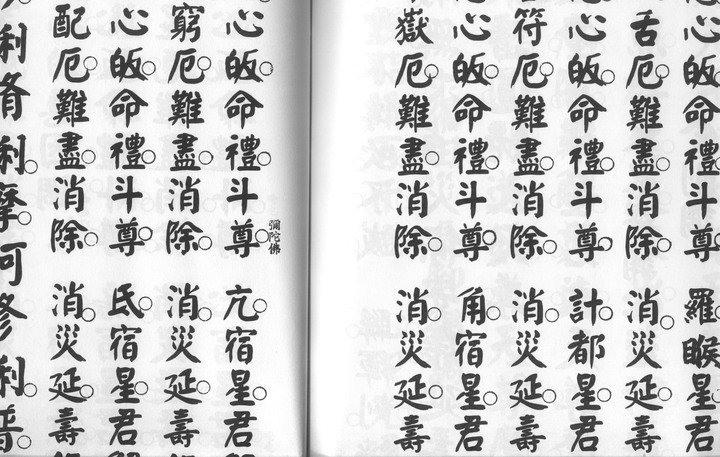 心皈命禮斗尊 羅睺星君
舌厄難盡消除 消災延壽
心皈命禮斗尊 計都星君
符厄難盡消除 消災延壽
心皈命禮斗尊 角宿星君
獄厄難盡消除 消災延壽
心皈命禮斗尊 亢宿星君
彌陀佛
窮厄難盡消除 消災延壽
心皈命禮斗尊 氐宿星君
配厄難盡消除 消災延壽
利脩利摩訶修利